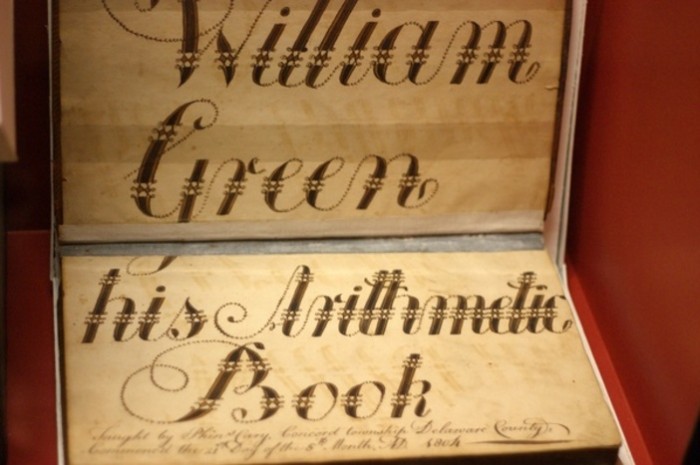 William
Green
his Arithmetic
Book
Taught by Cary, Concord township Delaware County,
Commenced the Day of the 5th Month, AD. 1804